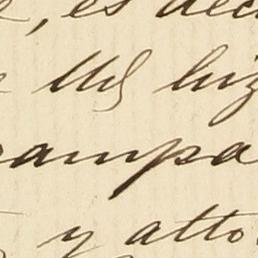 , es dec
Uds hiz
campa
y alto